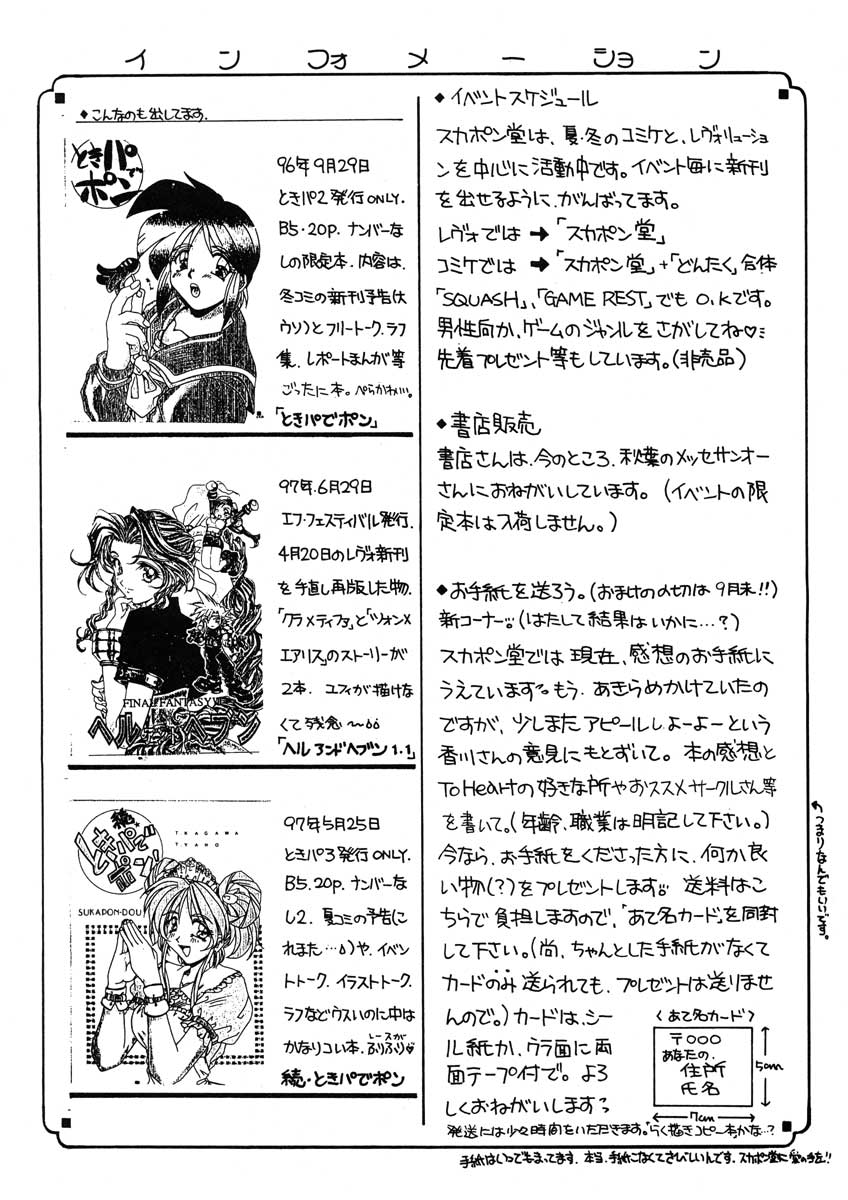 インフォメーション
◆こんなのも出してます.
ときパでポン
96年9月29日
ときパ2発行ONLY.
B5・20p. ナンバーな
しの限定本. 内容は.
冬コミの新刊予告(大
ウソ)とフリートーク. ラフ
集. レポートまんが等
ごったに本. ぺらかわい.
「ときパでポン」
97年.6月29日
エフ・フェスティバル発行.
4月20日のレヴォ新刊
を手直し再版した物.
「クラ×ティファ」と「ツォン×
エアリス」のストーリーが
2本. ユフィが描けな
くて残念〜
「ヘルアンドヘブン1.1」
FINAL FANTASY
ヘルアンドヘブン
97年5月25日
ときパ3発行ONLY.
B5.20p. ナンバーな
し2. 夏コミの予告(こ
れまた…)や. イベン
トトーク. イラストトーク.
ラフなどウスいのに中は
かなりコい本. レースがふりふり♥
続・ときパでポン
続・ときパでポン
TKAGAWA
TYAHO
SUKAPON-DOU
◆イベントスケジュール
スカポン堂は、夏・冬のコミケと、レヴォリューショ
ンを中心に活動中です。イベント毎に新刊
を出せるように、がんばってます。
レヴォでは ➡「スカポン堂」
コミケでは ➡「スカポン堂」+「どんたく」合体
「SQUASH」、「GAME REST」でも O.Kです。
男性向か、ゲームのジャンルをさがしてね♡
先着プレゼント等もしています。(非売品)
◆書店販売
書店さんは、今のところ、秋葉のメッセサンオー
さんにおねがいしています。(イベントの限
定本は入荷しません。)
◆お手紙を送ろう。(おまけの〆切は9月末!!)
新コーナー。(はたして結果はいかに…?)
スカポン堂では現在、感想のお手紙に
うえています。もう、あきらめかけていたの
ですが、少しまたアピールしよーよーという
香川さんの意見にもとずいて。本の感想と
To Heartの好きな所やおススメサークルさん等
を書いて。(年齢、職業は明記して下さい。)
↰つまりなんでもいいです。
今なら、お手紙をくださった方に、何か良
い物(?)をプレゼントします。送料はこ
ちらで負担しますので、「あて名カード」を同封
して下さい。(尚、ちゃんとした手紙がなくて
カードのみ送られても、プレゼントは送りませ
んので。)カードは、シー
ル紙か、ウラ面に両
面テープ付で。よろ
しくおねがいします。
〈あて名カード〉
〒〇〇〇
あなたの.
住所
氏名
5cm
7cm
発送には少々時間をいただきます。らく描きコピー本かな…?
手紙はいつでもまってます. 本当.手紙こなくてさびしいんです. スカポン堂に愛の手を!!